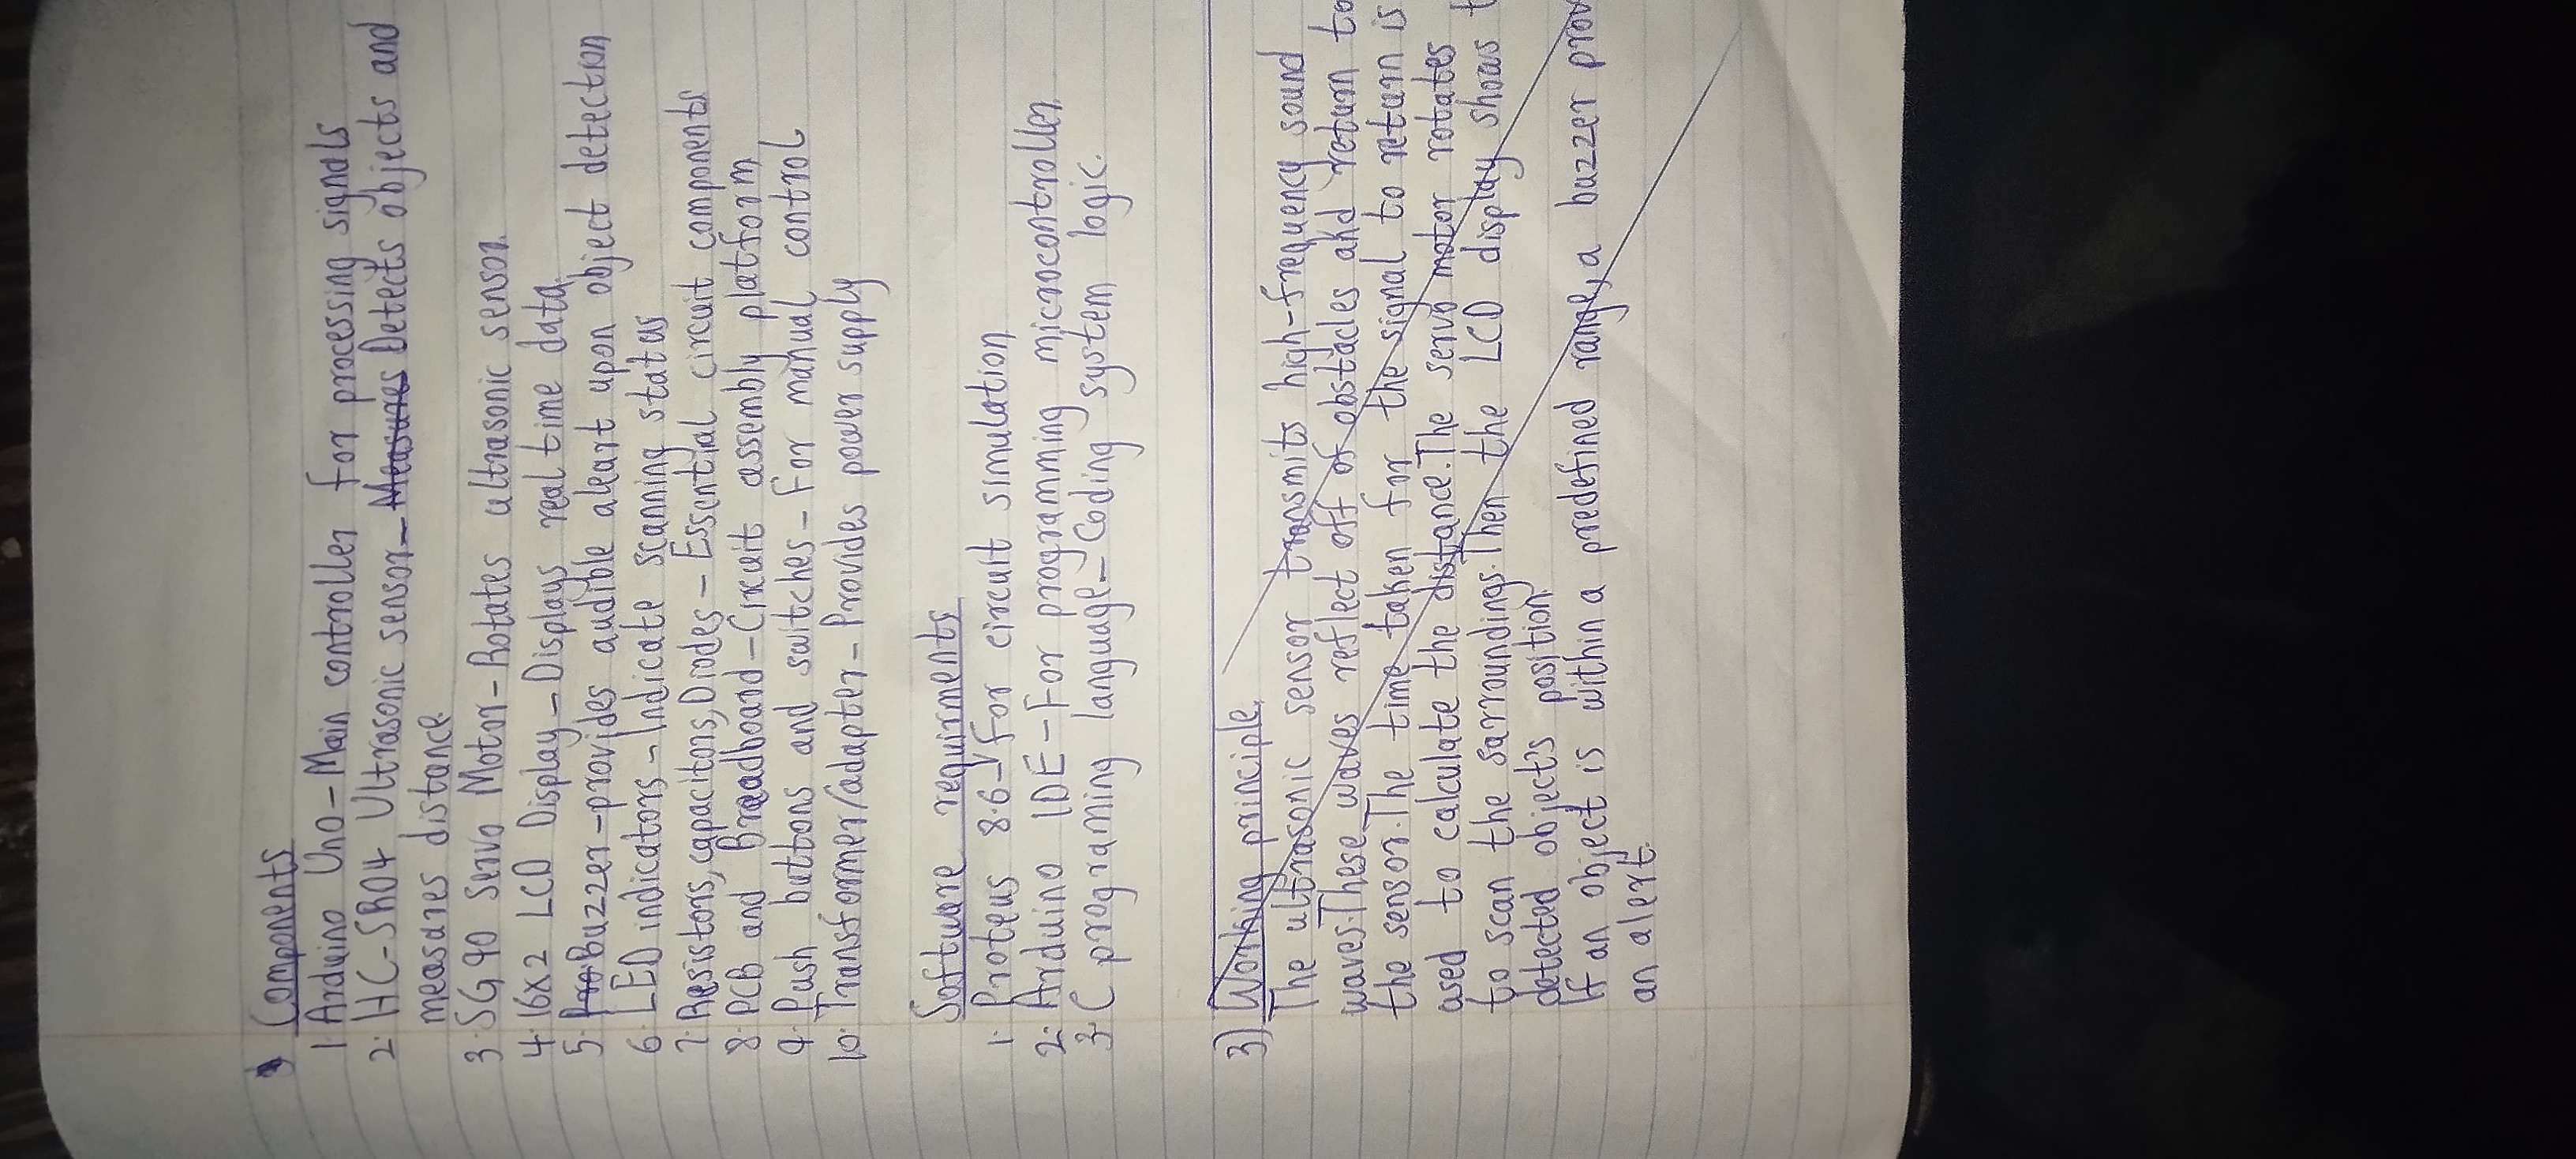 Components
1. Arduino Uno - Main controller for processing signals
2. HC-SR04 Ultrasonic sensor - Measures Detects objects and
measures distance.
3. SG90 Servo Motor - Rotates ultrasonic sensor.
4. 16x2 LCD Display - Displays real time data.
5. Buzzer - provides audible aleart upon object detection
6. LED indicators - Indicate scanning status
7. Resistors, capacitors, Diodes - Essential circuit components
8. PCB and Breadboard - Circuit assembly platform
9. Push buttons and switches - For manual control
10. Transformer/adapter - Provides power supply
Software requirments
1. Proteus 8.6 - For circuit simulation
2. Arduino IDE - For programming microcontroller.
3. C programing language - Coding system logic.
3) Working principle
The ultrasonic sensor transmits high-frequency sound
waves. These waves reflect off of obstacles and return to
the sensor. The time taken for the signal to return is
used to calculate the distance. The servo motor rotates
to scan the sarroundings. Then the LCD display shows t
detected object's position.
If an object is within a predefined range, a buzzer prov
an alert.